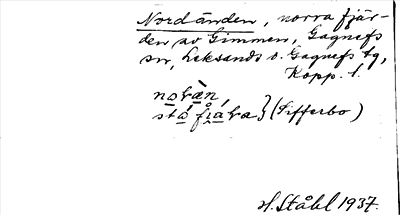 Nordänden, norra fjär-
den av Gimmen, Gagnefs
sn, Leksands o. Gagnefs tg,
Kopp. l.
(Tifferbo)
H. Ståhl 1937.